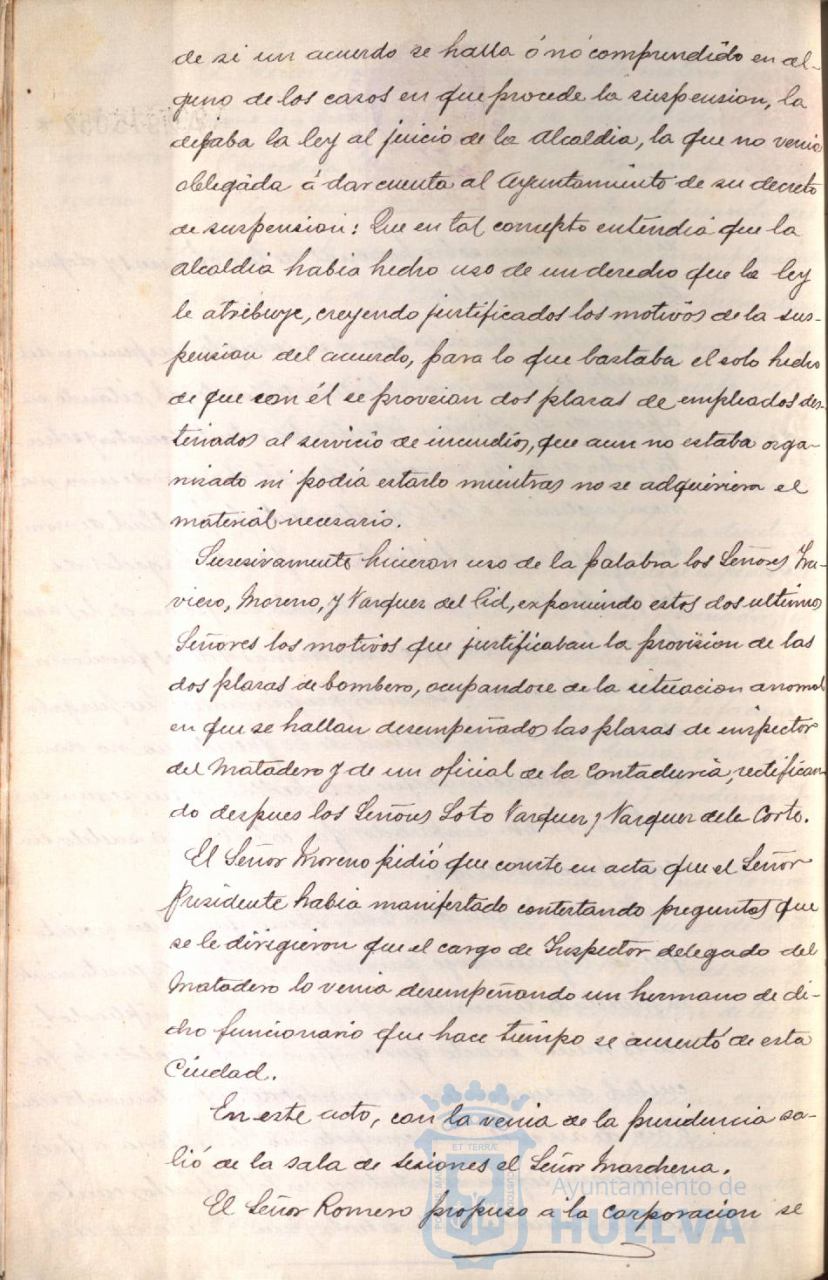 de si un acuerdo se halla ó nó comprendido en al-
guno de los casos en que procede la suspension, la
dejaba la ley al juicio de la Alcaldia, la que no venia
obligada á dar cuenta al Ayuntamiento de su decreto
de suspension: Que en tal concepto entendia que la
Alcaldia habia hecho uso de un derecho que la ley
le atribuye, creyendo justificados los motivos de la sus-
pension del acuerdo, para lo que bastaba el solo hecho
de que con él se proveian dos plazas de empleados des-
tinados al servicio de incendios, que aun no estaba orga-
nizado ni podia estarlo mientras no se adquiriera el
material necesario.
Sucesivamente hicieron uso de la palabra los Señores
Moreno, y Vazquez del Cid, exponiendo estos dos ultimos
Señores los motivos que justificaban la provision de las
dos plazas de bombero, ocupandose de la situacion anomal
en que se hallan desempeñados las plazas de inspector
del Matadero y de un oficial de la Contaduria, rectifican-
do despues los Señores Soto Vazquez y Vazquez de la Corte.
El Señor Moreno pidió que conste en acta que el Señor
Presidente habia manifestado contestando preguntas que
se le dirigieron que el cargo de Inspector delegado del
Matadero lo venia desempeñando un hermano de di-
cho funcionario que hace tiempo se ausentó de esta
Ciudad.
En este acto, con la venia de la presidencia sa-
lió de la sala de sesiones el Señor Marchena.
El Señor Romero propuso a la corporacion se
ET TERRÆ
Ayuntamiento de
HUELVA